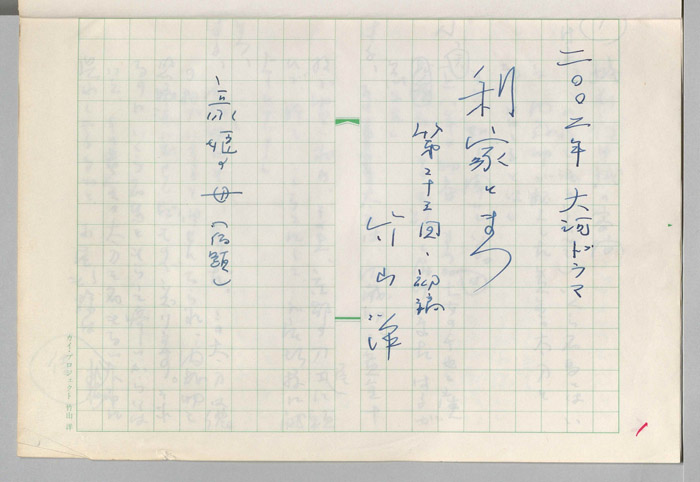 二〇〇二年 大河ドラマ
利家とまつ
第二十五回・初稿
竹山洋
京姫の母(仮題)
カイ・プロジェクト 竹山 洋